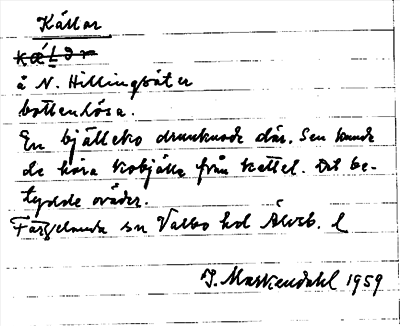 Källar
kæ̀Ldɐr
å N. Hillingsäter
bottenlösa.
En bjälleko drunknade där. Sen kunde
de höra kobjälla från kettel. Det be-
tydde oväder.
Färgelanda sn Valbo hd Älvsb. l
J. Markendahl 1959